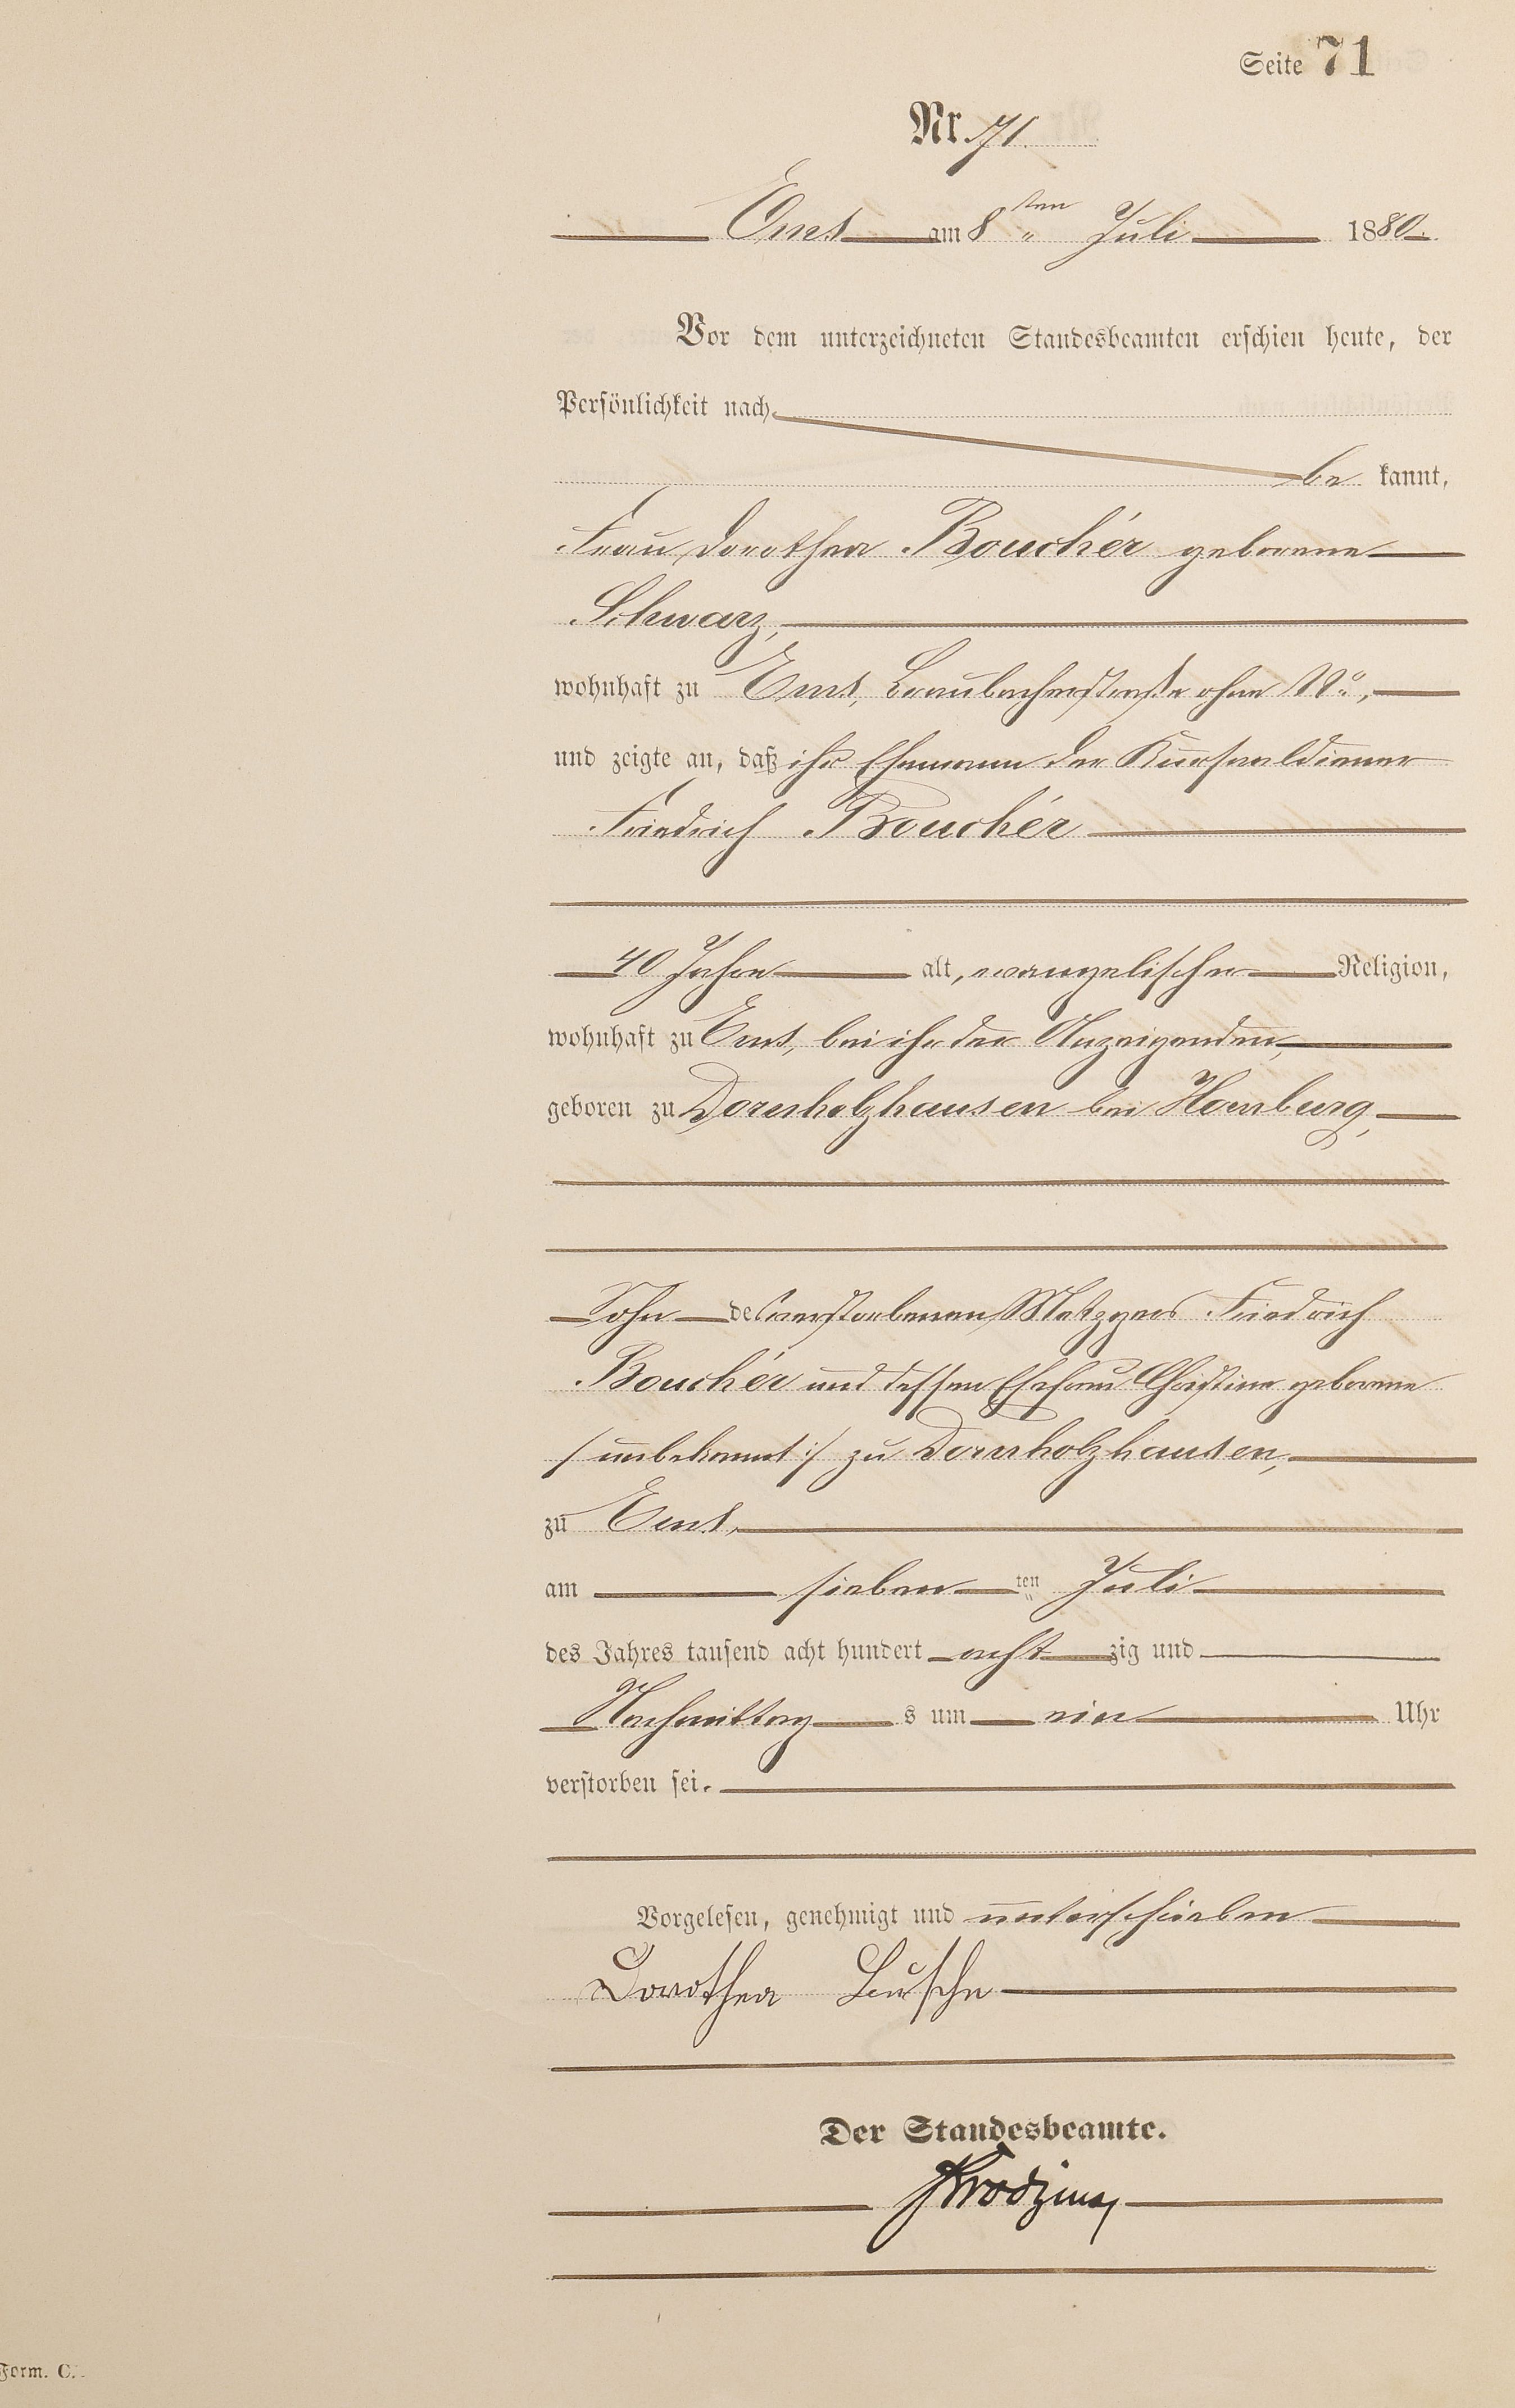 Seite 71
Nr. 71.
Ems am 8ten Juli 1880.
Vor dem unterzeichneten Standesbeamten erschien heute, der
Persönlichkeit nach
be kannt,
Frau Dorothea Bouchér geborene
Schwarz,
wohnhaft zu Ems, Braubacherstraße ohne No.,
und zeigte an, daß ihr Ehemann der Kursaaldiener
Friedrich Bouchér
40 Jahre alt, evangelischer Religion,
wohnhaft zu Ems, bei ihr der Anzeigenden,
geboren zu Dornholzhausen bei Homburg,
Sohn des verstorbenen Metzgers Friedrich
Bouchér und dessen Ehefrau Christine geborene
/: unbekannt :/ zu Dornholzhausen,
zu Ems,
am sieben ten Juli
des Jahres tausend acht hundert acht zig und
Nachmittag s um ein Uhr
verstorben sei.
Vorgelesen, genehmigt und unterschrieben
Dorothea
Der Standesbeamte.
Form. C.